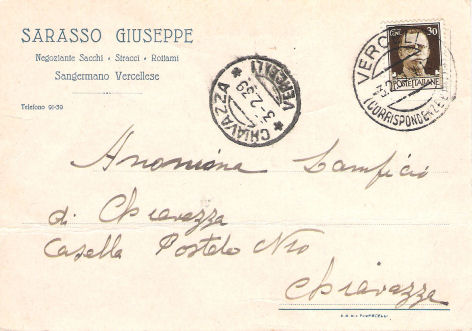 SARASSO GIUSEPPE
Negoziante Sacchi - Stracci - Rottami
Sangermano Vercellese
Telefono 91-39
CENT. 30
POSTE ITALIANE
VERCELLI
(CORRISPONDENZE)
CHIAVAZZA
3.2.39
VERCELLI
Anonima Lanificio
di Chiavazza
Casella Postale Nro
Chiavazza